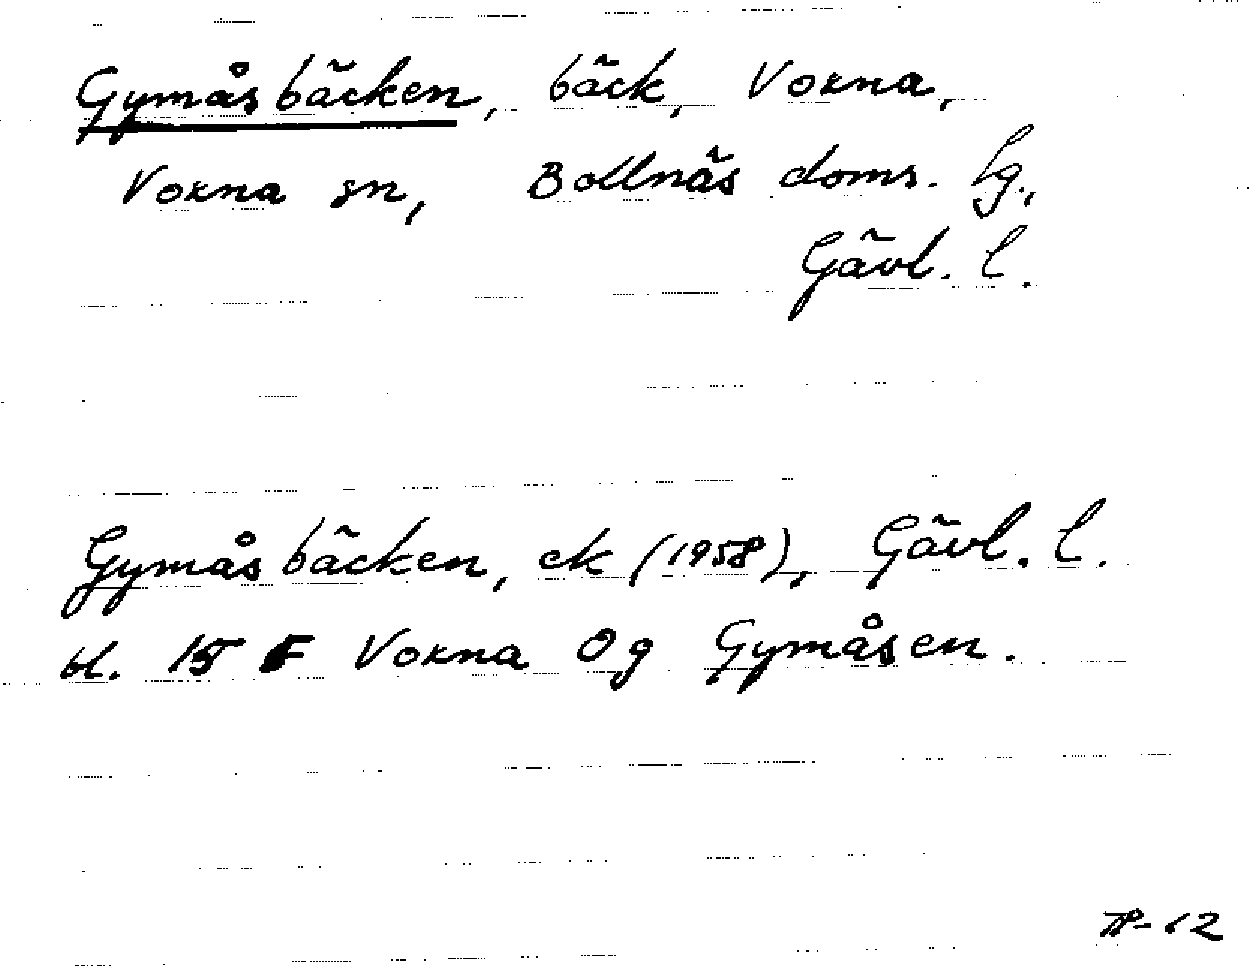 Gymåsbäcken, bäck, Voxna,
Voxna sn, Bollnäs doms. lg.,
Gävl. l.
Gymåsbäcken, ek (1958), Gävl. l.
bl. 15 F Voxna Og Gymåsen.